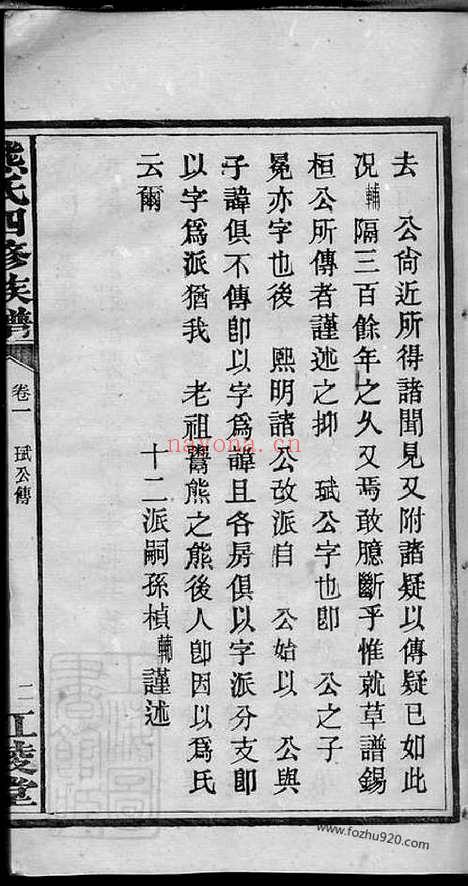 去　公尙近所得諸聞見又附諸疑以傳疑已如此
况輔隔三百餘年之久又焉敢臆斷乎惟就草譜錫
桓公所傳者謹述之抑　珷公字也卽　公之子
冕亦字也後　熙明諸公改派自　公始以　公與
子諱俱不傳卽以字爲諱且各房俱以字派分支卽
以字爲派猶我　老祖鬻熊之熊後人卽因以爲氏
云爾
十二派嗣孫楨輔謹述
熊氏四修族譜
卷一　珷公傳
二
江陵堂
nayona.cn
www.fozhu920.com